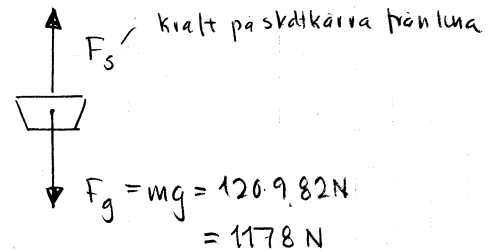 Fs kraft på skottkärra från lina
Fg = mg = 120·9,82N
= 1178 N